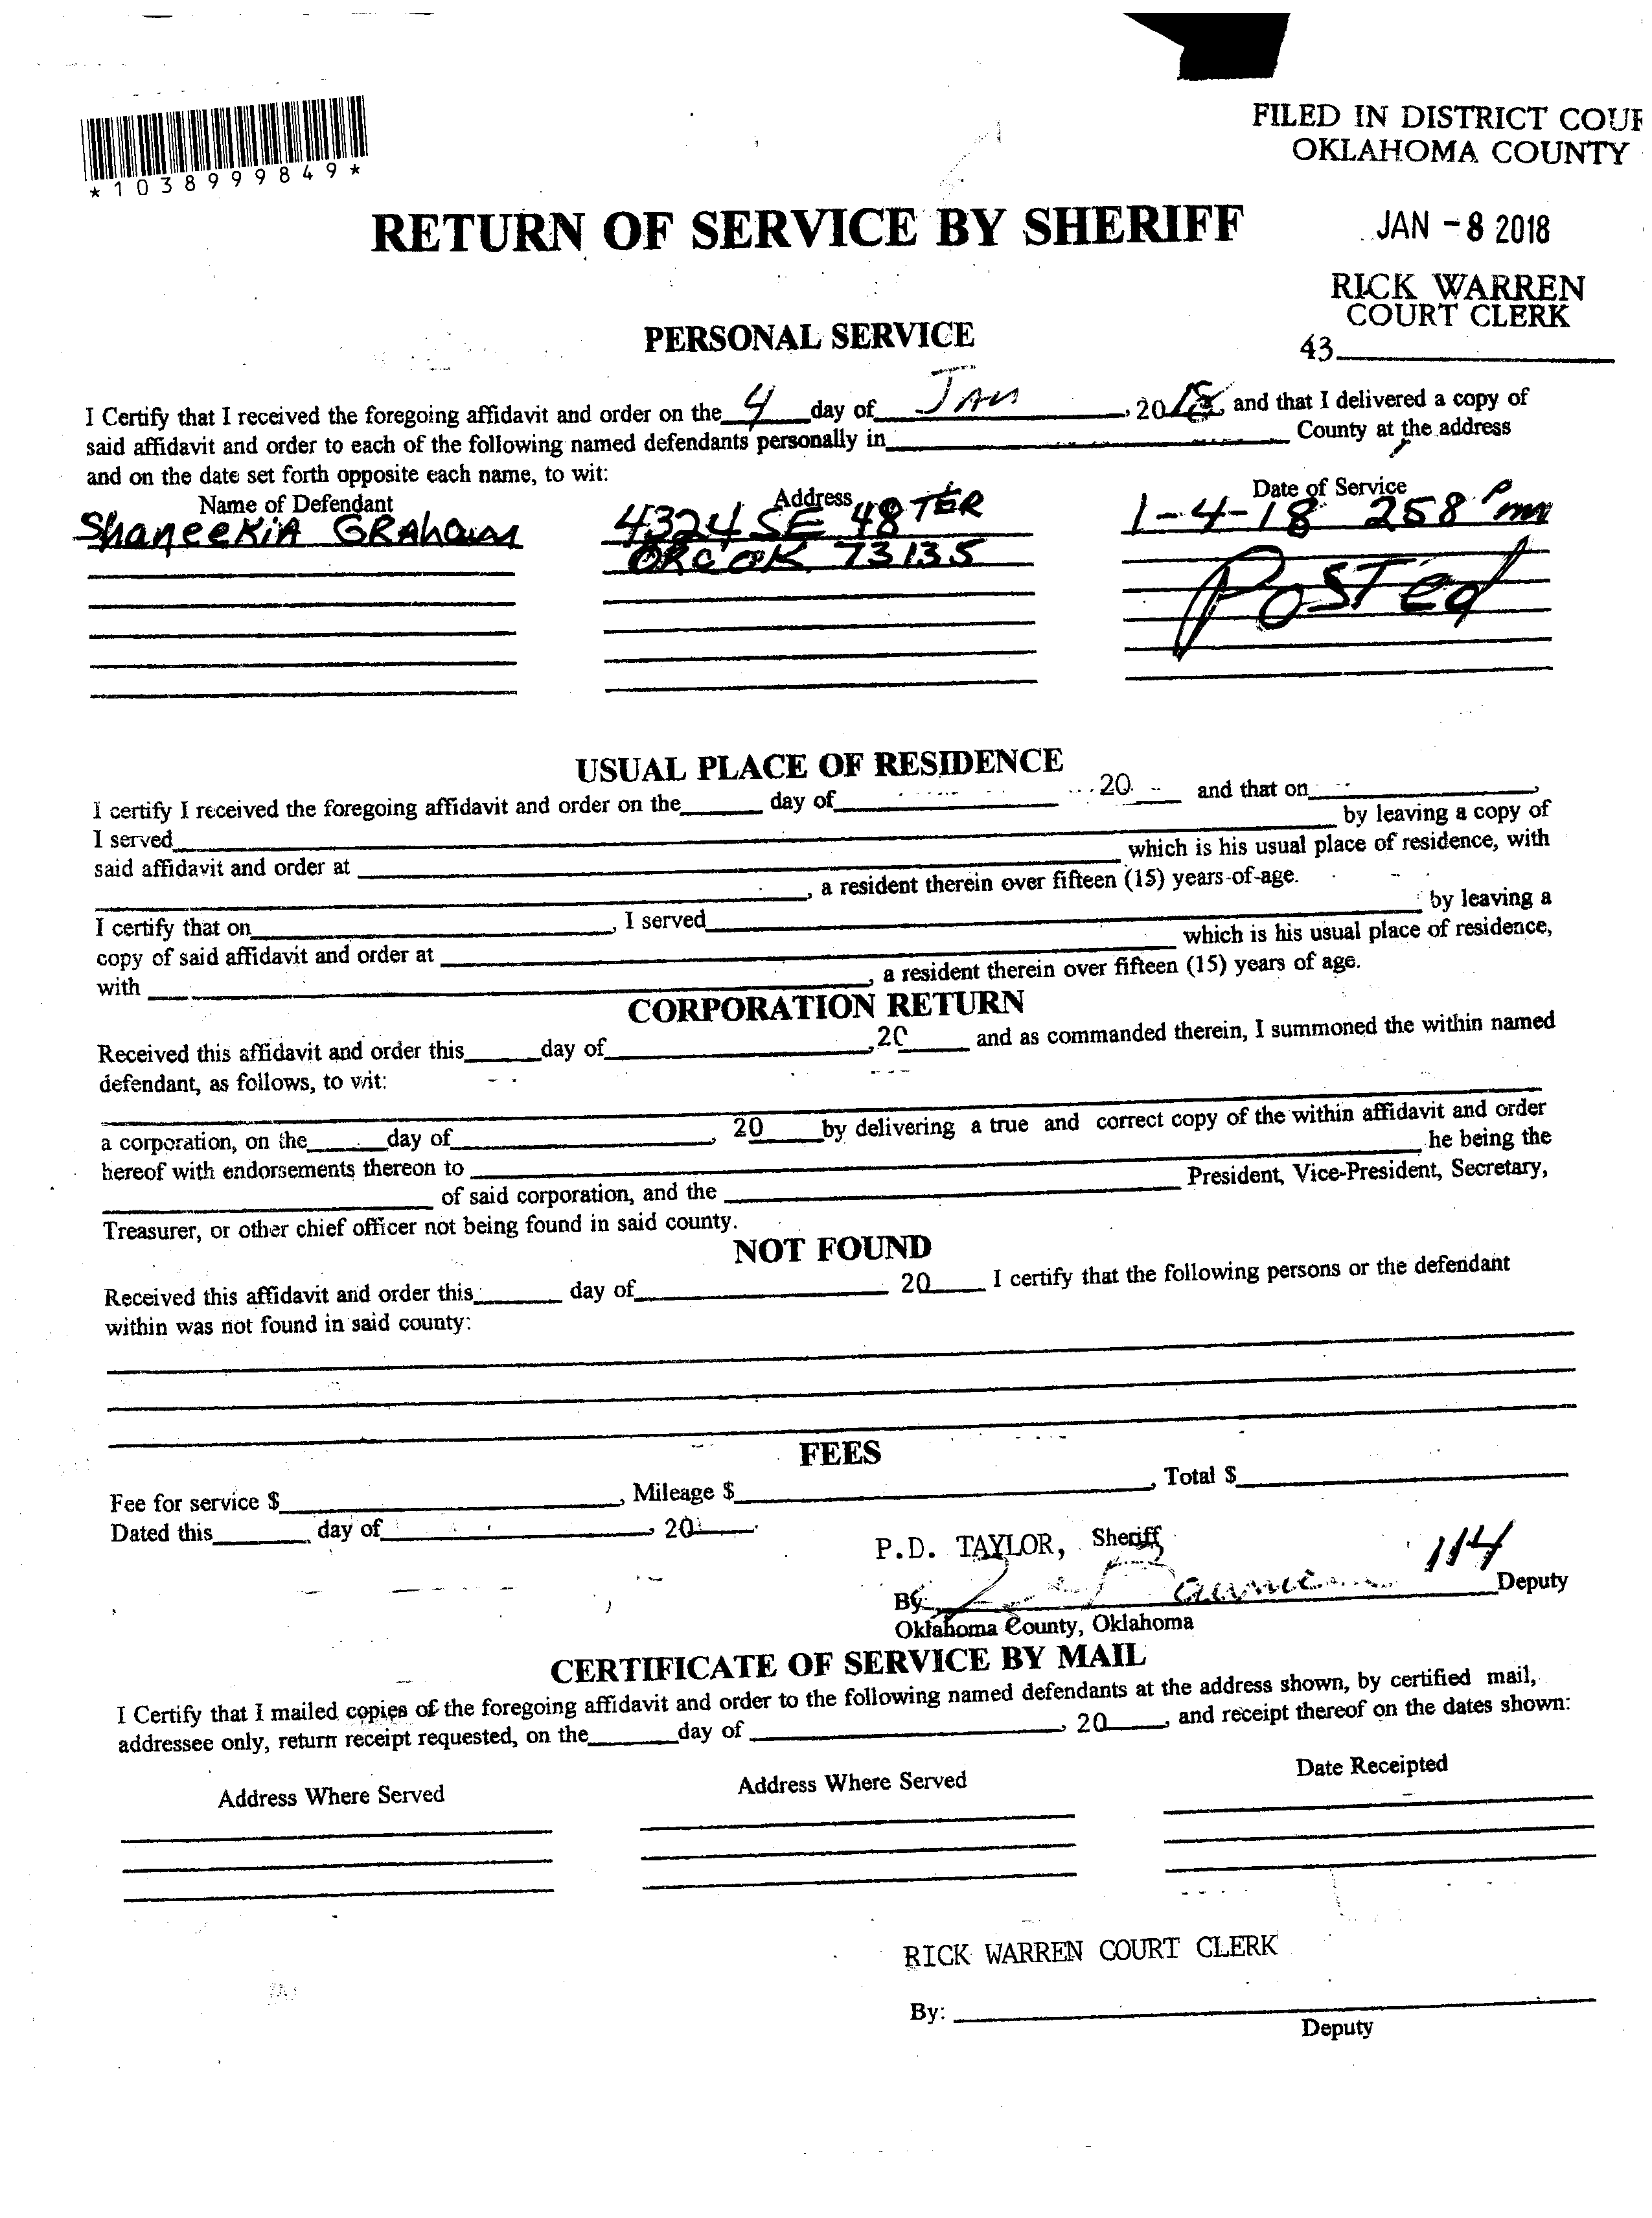 FILED IN DISTRICT COUR
OKLAHOMA COUNTY
*1038999849*
RETURN OF SERVICE BY SHERIFF
JAN - 8 2018
RICK WARREN
COURT CLERK
43
PERSONAL SERVICE
I Certify that I received the foregoing affidavit and order on the 4 day of JAN, 2018, and that I delivered a copy of
said affidavit and order to each of the following named defendants personally in County at the address
and on the date set forth opposite each name, to wit:
Name of Defendant Address Date of Service
ShaneeKiA GRAham 4324 SE 48 TER 1-4-18 258 Pm
OKC OK 73135
PosTed
USUAL PLACE OF RESIDENCE
I certify I received the foregoing affidavit and order on the day of 20 and that on ,
I served by leaving a copy of
said affidavit and order at which is his usual place of residence, with
, a resident therein over fifteen (15) years-of-age.
I certify that on , I served by leaving a
copy of said affidavit and order at which is his usual place of residence,
with , a resident therein over fifteen (15) years of age.
CORPORATION RETURN
Received this affidavit and order this day of ,20 and as commanded therein, I summoned the within named
defendant, as follows, to wit:
a corporation, on the day of , 20 by delivering a true and correct copy of the within affidavit and order
hereof with endorsements thereon to he being the
of said corporation, and the President, Vice-President, Secretary,
Treasurer, or other chief officer not being found in said county.
NOT FOUND
Received this affidavit and order this day of 20 I certify that the following persons or the defendant
within was not found in said county:
FEES
Fee for service $ , Mileage $ , Total $
Dated this , day of , 20
P.D. TAYLOR, Sheriff,
114
By: Deputy
Oklahoma County, Oklahoma
CERTIFICATE OF SERVICE BY MAIL
I Certify that I mailed copies of the foregoing affidavit and order to the following named defendants at the address shown, by certified mail,
addressee only, return receipt requested, on the day of , 20 , and receipt thereof on the dates shown:
Address Where Served Address Where Served Date Receipted
RICK WARREN COURT CLERK
By:
Deputy